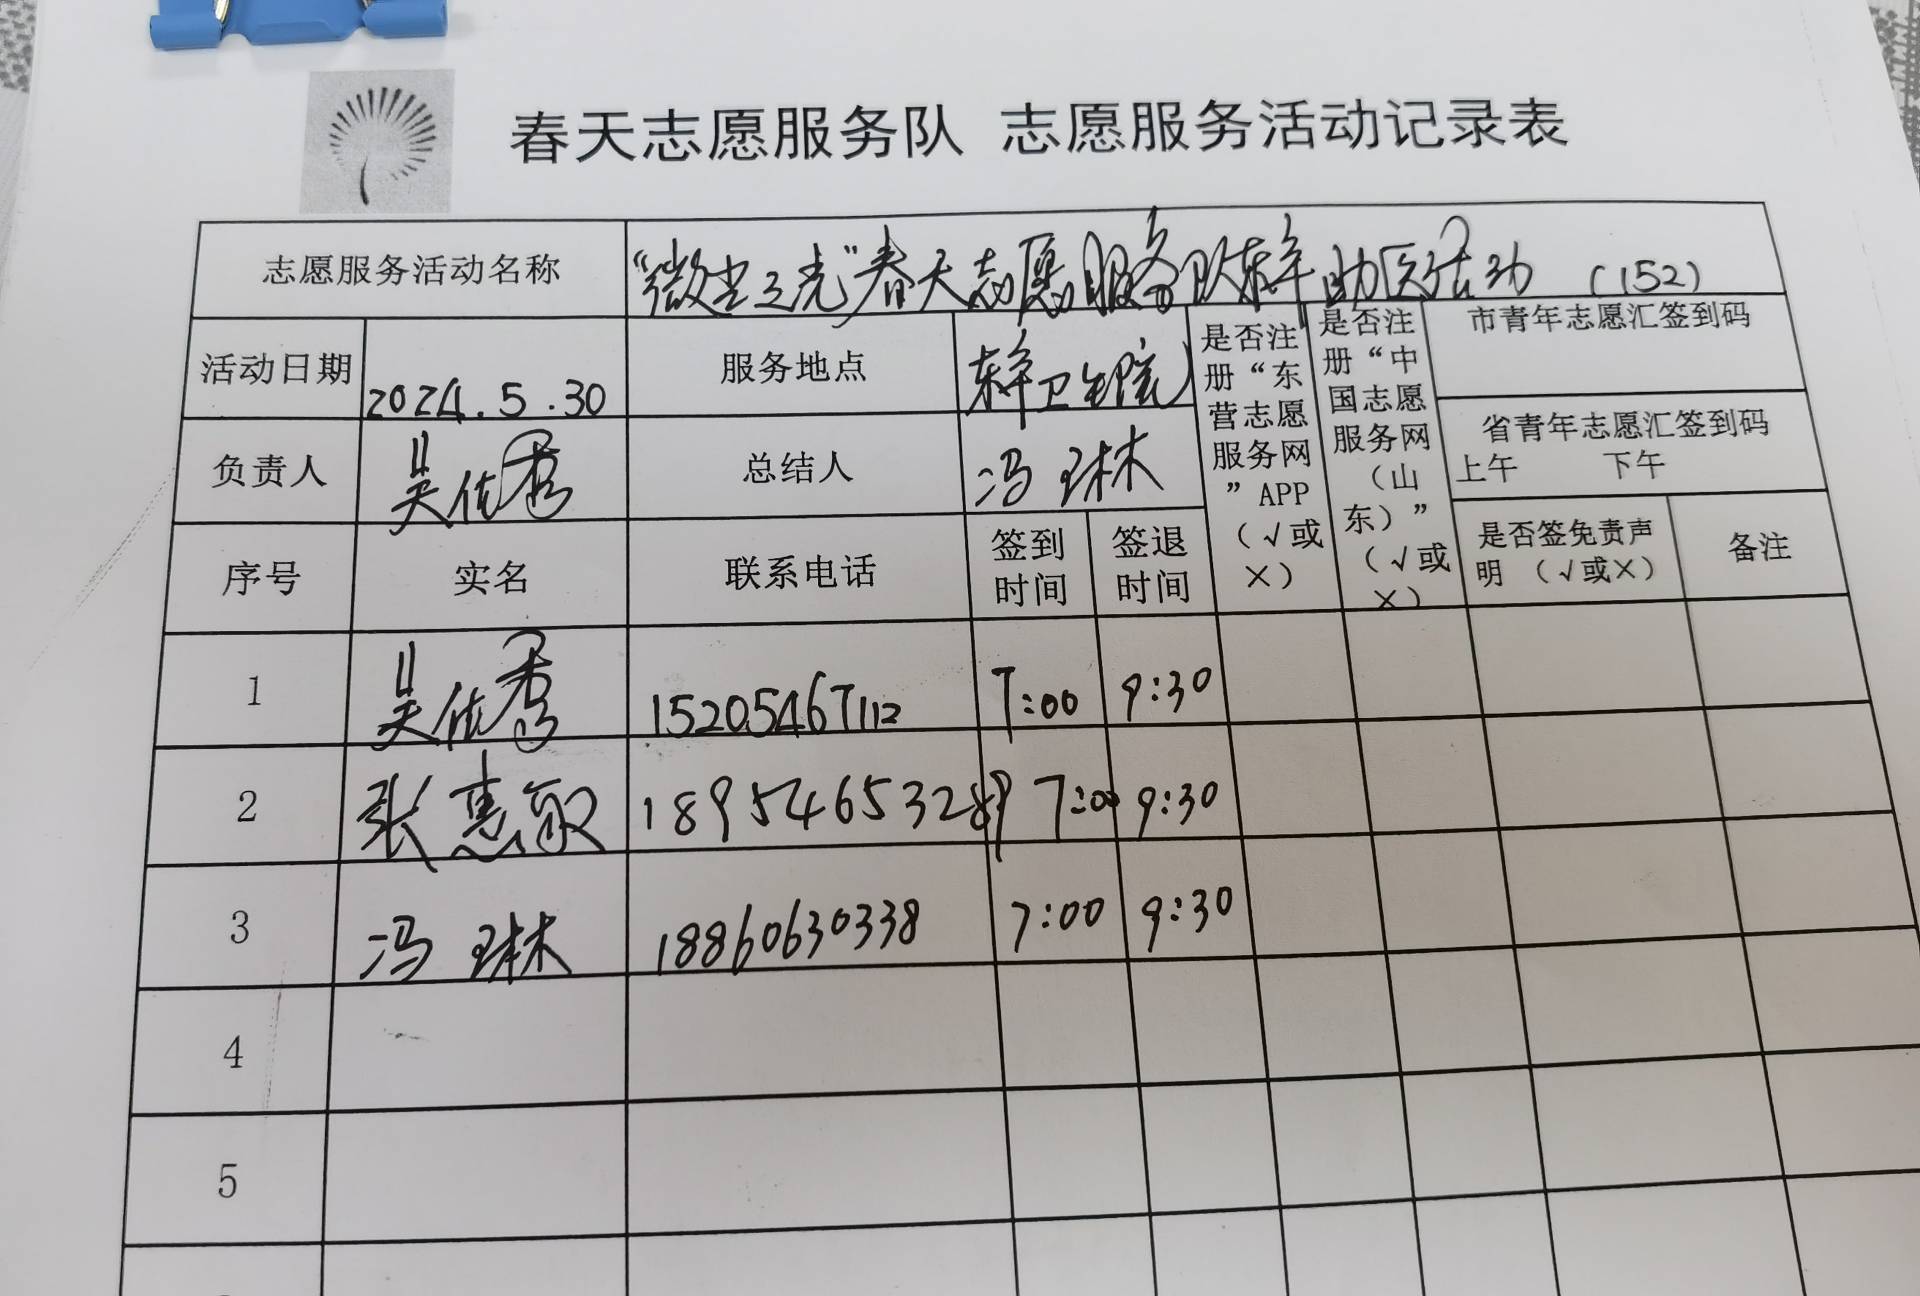 春天志愿服务队 志愿服务活动记录表
志愿服务活动名称 “微尘之光”春天志愿服务队东辛助医活动 (152)
活动日期 2024.5.30 服务地点 东辛卫生院
负责人 吴佐秀 总结人 冯琳
是否注册“东营志愿服务网”APP（√或×）
是否注册“中国志愿服务网（山东）”（√或×）
市青年志愿汇签到码
省青年志愿汇签到码
上午 下午
序号 实名 联系电话 签到时间 签退时间 是否签免责声明（√或×） 备注
1 吴佐秀 15205467112 7:00 9:30
2 张惠敏 18954653289 7:00 9:30
3 冯琳 18860630338 7:00 9:30
4
5